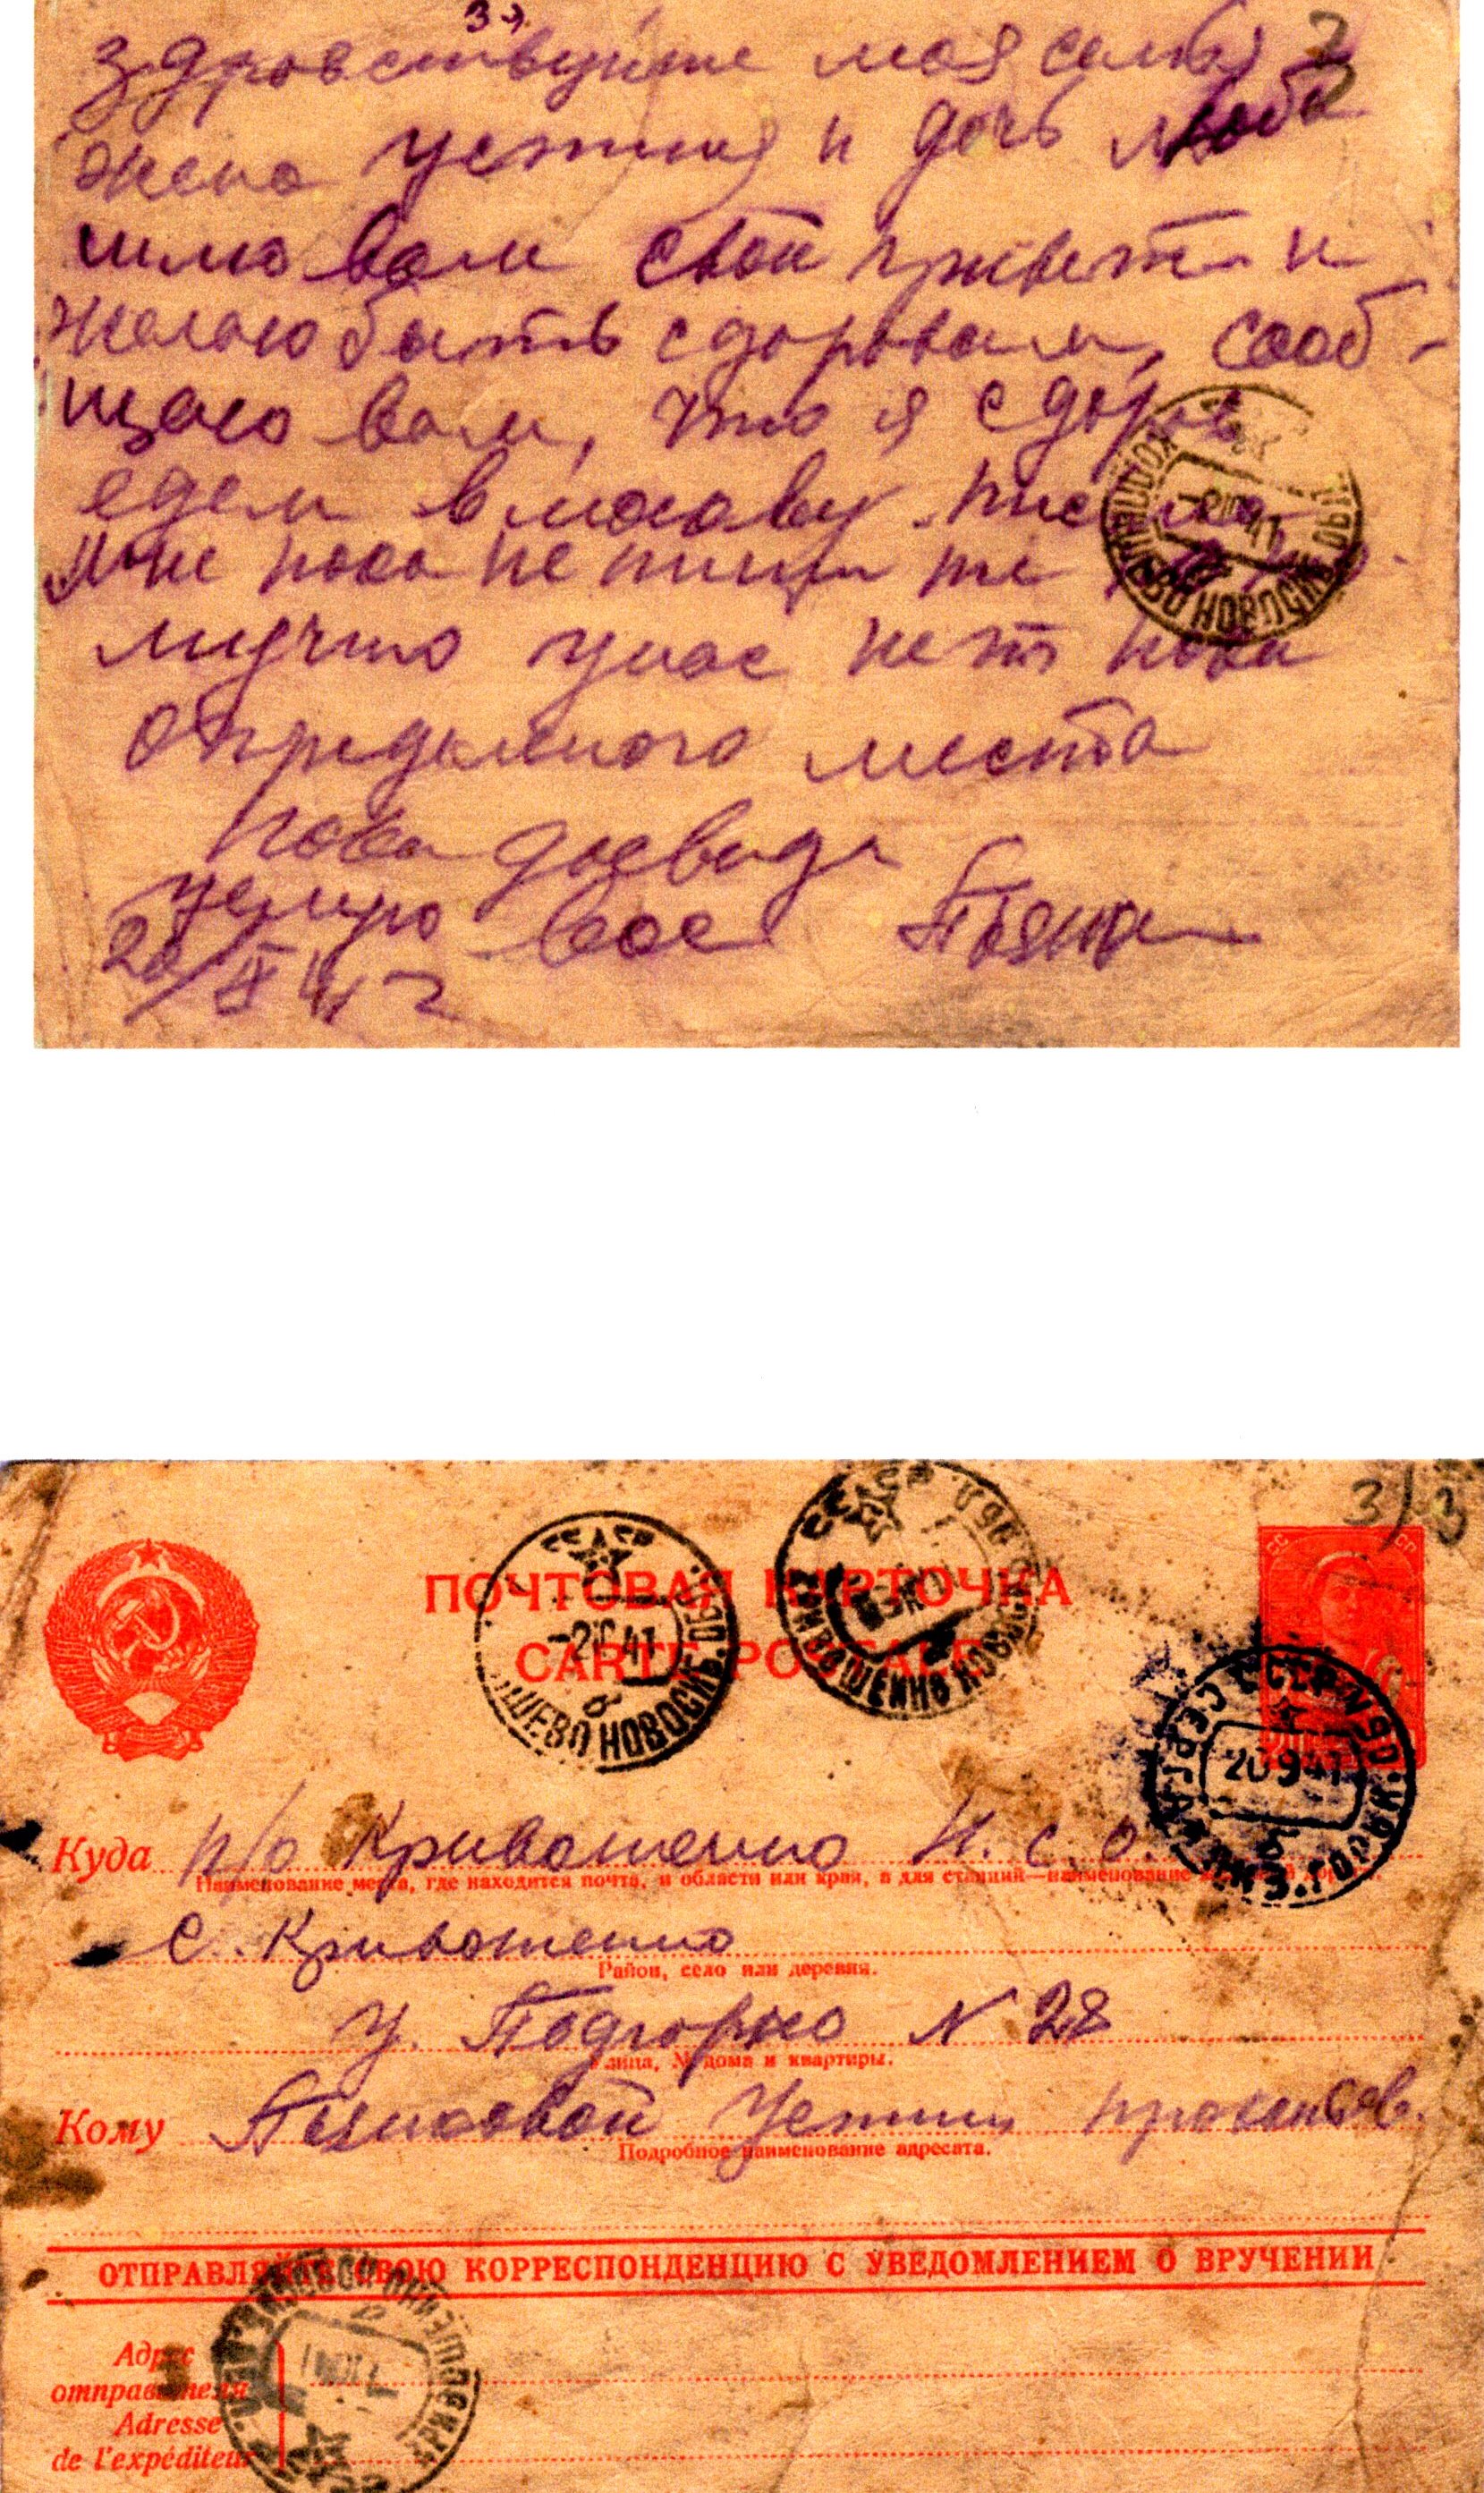 3
здровствуйте моя семья
жена Устиния и дочь Люба
шлю вам свой привет и
желаю быть сдоровыми, сооб-
щаю вам, что я сдоров
едем в москву. писма
мне пока не пиши те
у нас нет пока
определеного места
пока досвида
целую вас
20/IX 41 г
КОЛПАШЕВО НОВОСИБ. ОБЛ.
41
3) 3
ПОЧТОВАЯ КАРТОЧКА
CARTE POSTALE
СССР
СССР
-2 X 41
ШЕВО НОВОСИБ. ОБЛ.
б
СССР
КРИВОШЕИНО НОВОСИБ. ОБЛ.
СССР
20 9 41
Куда п/о Кривошеино Н. с. о.
Наименование места, где находится почта, и области или края, а для станций—наименование
с. Кривошеино
Район, село или деревня.
у. Подгорно N 28
Улица, № дома и квартиры.
Кому Устинии
Подробное наименование адресата.
ОТПРАВЛЯЙТЕ СВОЮ КОРРЕСПОНДЕНЦИЮ С УВЕДОМЛЕНИЕМ О ВРУЧЕНИИ
Адрес
отправителя
Adresse
de l'expéditeur
КРИВОШЕИНО